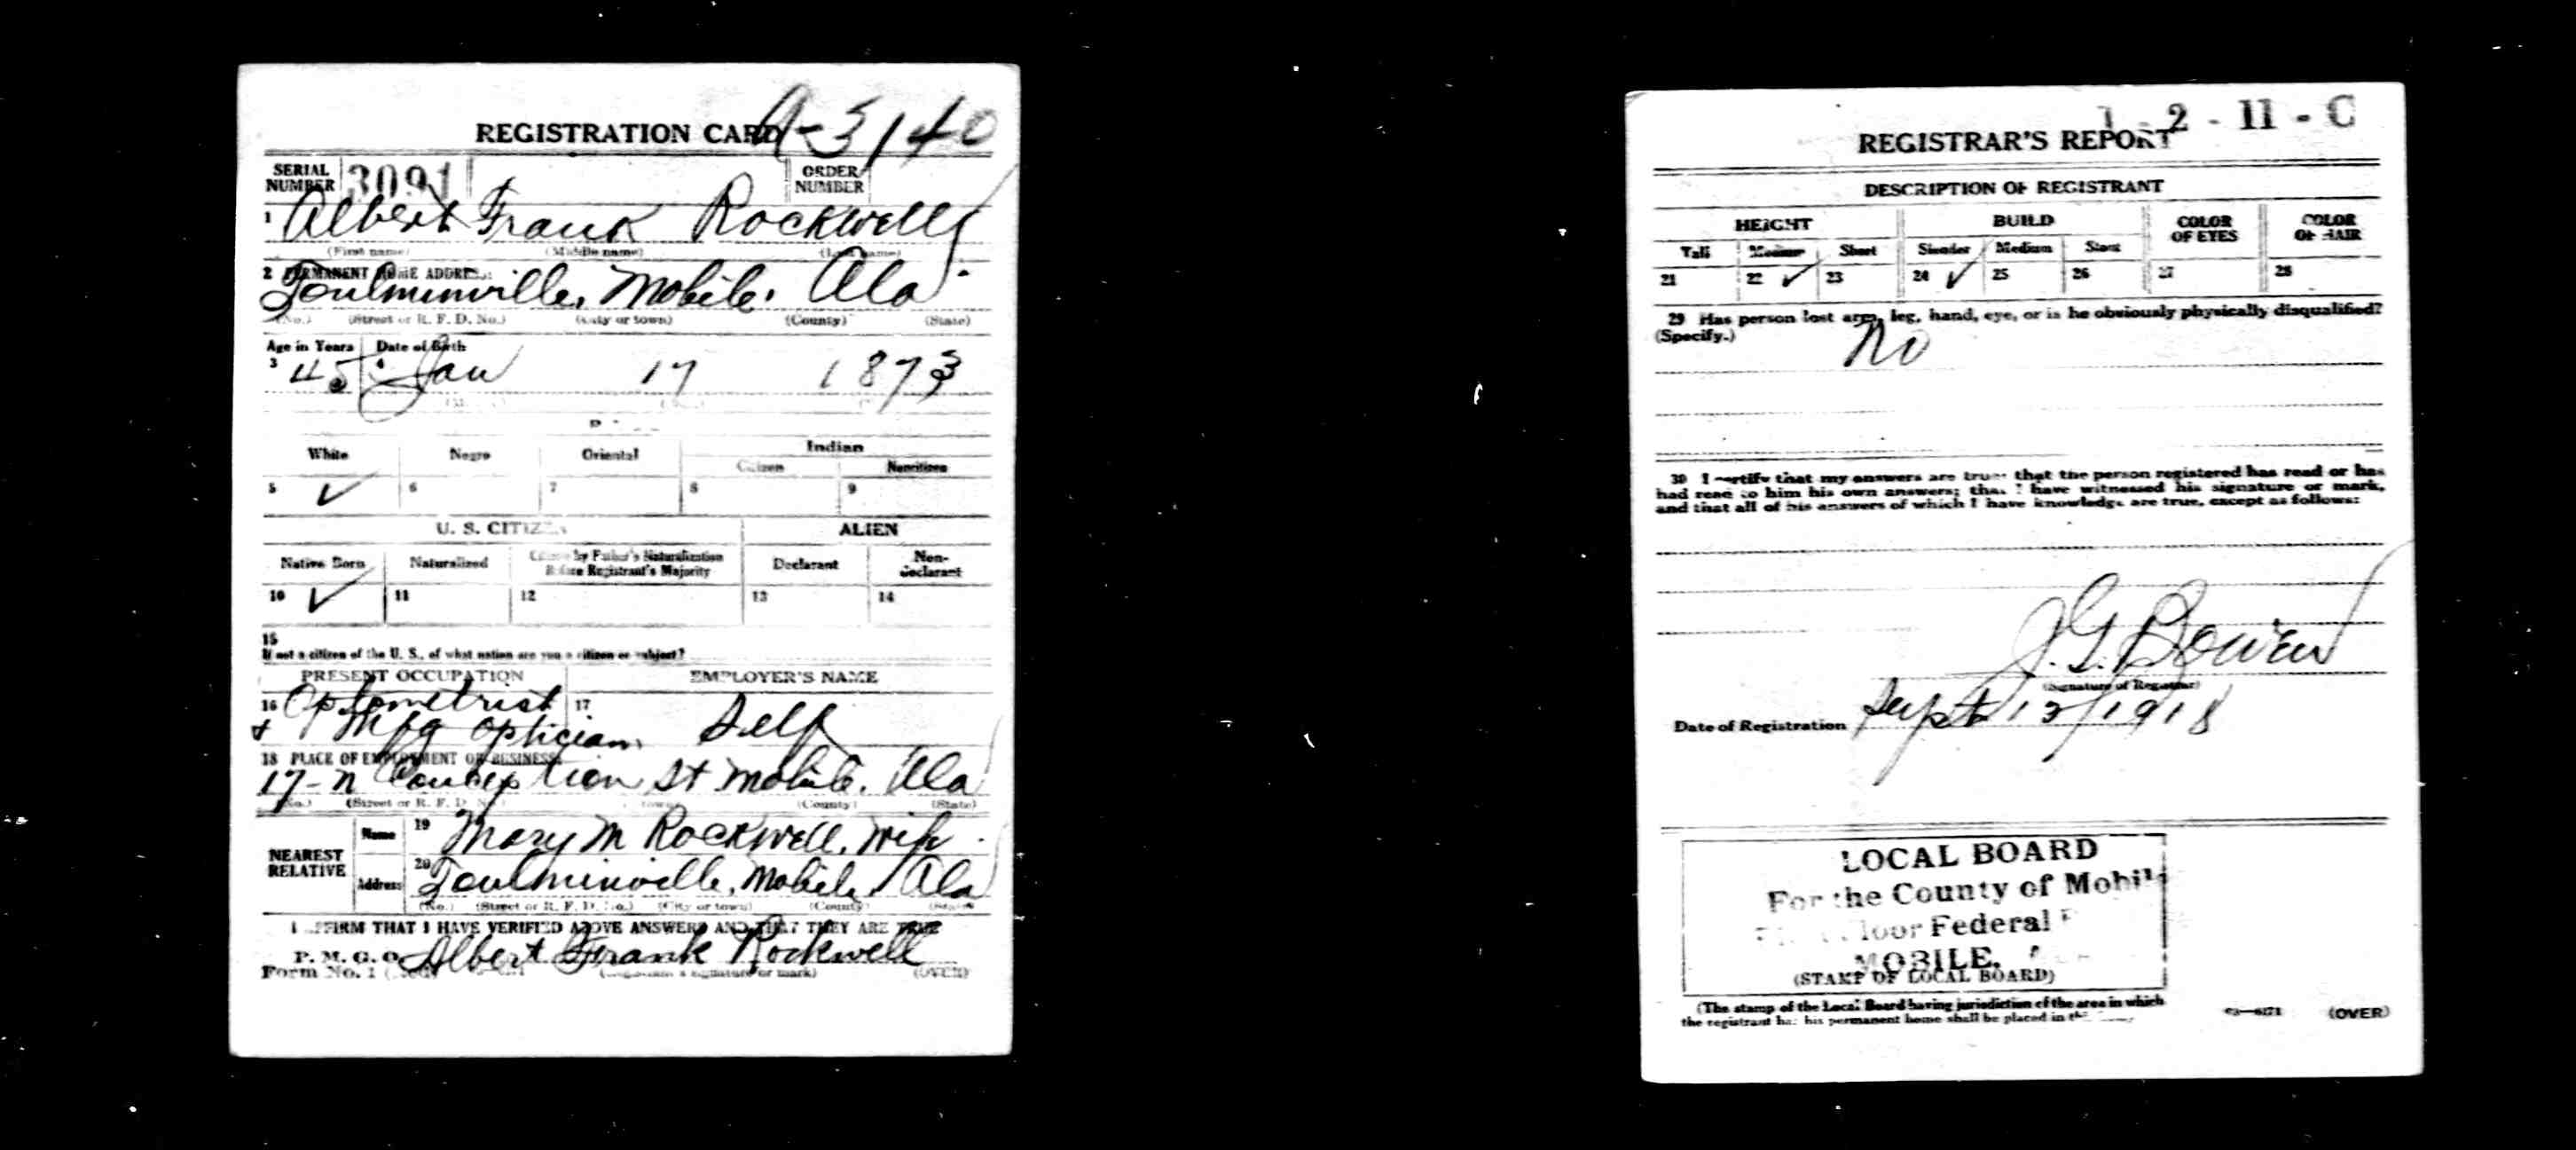 REGISTRATION CARD A-3140
SERIAL NUMBER 3091 ORDER NUMBER
1 Albert Frank Rockwell
(First name) (Middle name) (Last name)
2 PERMANENT HOME ADDRESS:
Toulminville, Mobile, Ala
(No.) (Street or R. F. D. No.) (City or town) (County) (State)
Age in Years Date of Birth
3 45 4 Jan 17 1873
White Negro Oriental Indian
Citizen Noncitizen
5 ✓ 6 7 8 9
U. S. CITIZEN ALIEN
Native Born Naturalized Citizen by Father's Naturalization Before Registrant's Majority Declarant Non-declarant
10 ✓ 11 12 13 14
15
If not a citizen of the U. S., of what nation are you a citizen or subject?
PRESENT OCCUPATION EMPLOYER'S NAME
16 Optometrist 17
+ Mfg Optician Self
18 PLACE OF EMPLOYMENT OR BUSINESS:
17-N Conception St Mobile, Ala
(No.) (Street or R. F. D. No.) (County) (State)
NEAREST RELATIVE Name 19 Mary M Rockwell, Wife
Address 20 Toulminville, Mobile, Ala
(No.) (Street or R. F. D. No.) (City or town) (County) (State)
I AFFIRM THAT I HAVE VERIFIED ABOVE ANSWERS AND THAT THEY ARE TRUE
P. M. G. O.
Form No. 1 (Red) Albert Frank Rockwell
(Registrant's signature or mark) (OVER)
1 - 2 - 11 - C
REGISTRAR'S REPORT
DESCRIPTION OF REGISTRANT
HEIGHT BUILD COLOR OF EYES COLOR OF HAIR
Tall Medium Short Slender Medium Stout
21 22 ✓ 23 24 ✓ 25 26 27 28
29 Has person lost arm, leg, hand, eye, or is he obviously physically disqualified?
(Specify.) No
30 I certify that my answers are true; that the person registered has read or has
had read to him his own answers; that I have witnessed his signature or mark,
and that all of his answers of which I have knowledge are true, except as follows:
J. G. Bowen
(Signature of Registrar)
Date of Registration Sept 12/1918
LOCAL BOARD
For the County of Mobile
Floor Federal
MOBILE,
(STAMP OF LOCAL BOARD)
(The stamp of the Local Board having jurisdiction of the area in which
the registrant has his permanent home shall be placed in
(OVER)